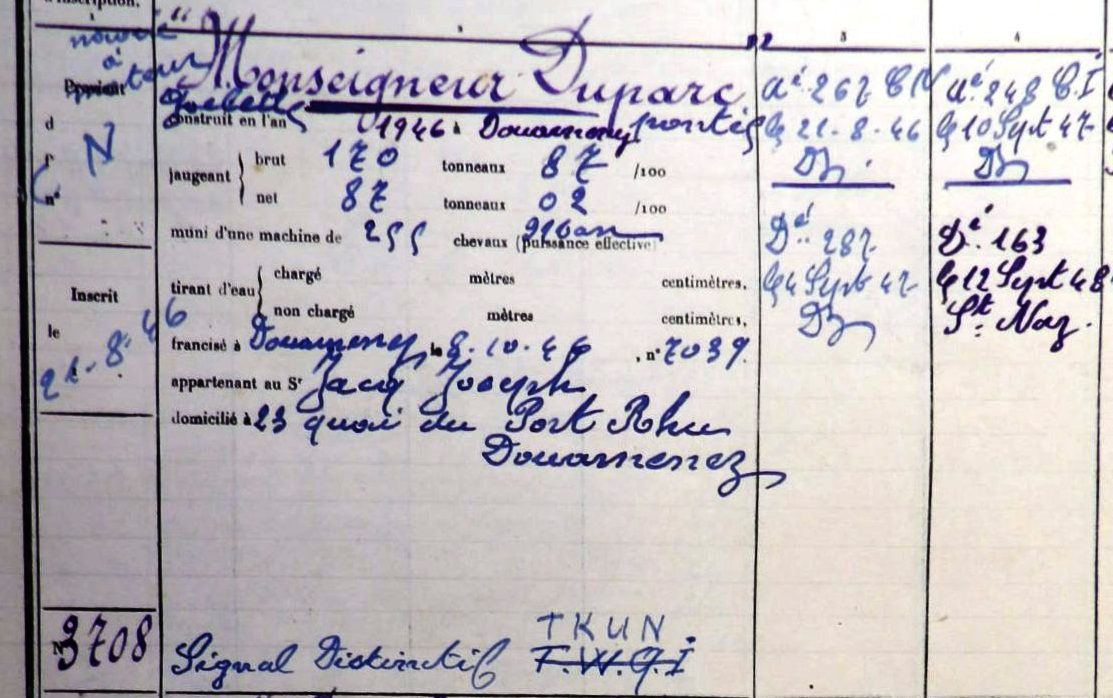 d'inscription.
3
4
à
Monseigneur Duparc
Goëlette
construit en l'an 1946 à Douarnenez ponté
d
N
jaugeant
brut 170 tonneaux 87 /100
net 87 tonneaux 02 /100
muni d'une machine de 255 chevaux (puissance effective)
tirant d'eau
chargé mètres centimètres.
non chargé mètres centimètres,
Inscrit
le
21-8-46
francisé à Douarnenez, le 8.10.46, n° 7039
appartenant au Sr Jacq Joseph
domicilié à 23 quai du Port Rhu
Douarnenez
N° 3708
TKUN.
Signal Distinctif F.W.Q.I
Aé. 267
le 21-8-46
Dé. 287
le 4 Sept 47
Aé. 248 C.I
le 10 Sept 47
Dé. 163
le 12 Sept 48
St. Naz.